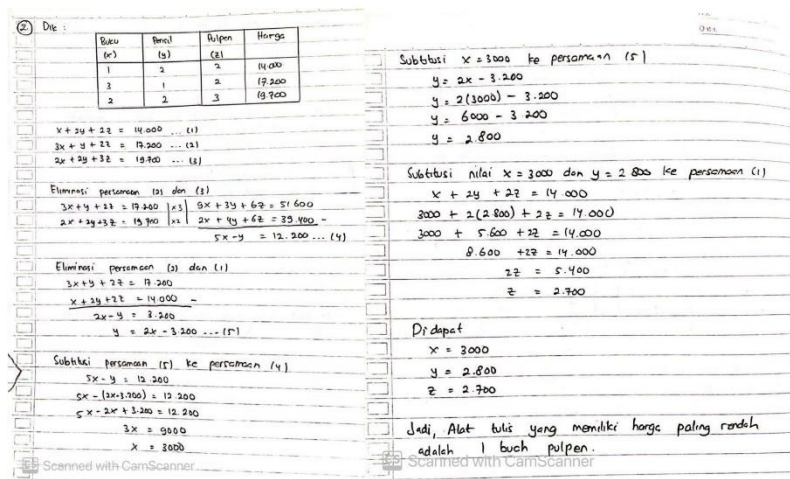 ② Dik :
Buku (x) Pensil (y) Pulpen (z) Harga
1 2 2 14.000
3 1 2 17.200
2 2 3 19.700
x + 2y + 2z = 14.000 ... (1)
3x + y + 2z = 17.200 ... (2)
2x + 2y + 3z = 19.700 ... (3)
Eliminasi persamaan (2) dan (3)
3x + y + 2z = 17.200 | x3 | 9x + 3y + 6z = 51.600
2x + 2y + 3z = 19.700 | x2 | 2x + 4y + 6z = 39.400 -
5x - y = 12.200 ... (4)
Eliminasi persamaan (2) dan (1)
3x + y + 2z = 17.200
x + 2y + 2z = 14.000 -
2x - y = 3.200
y = 2x - 3.200 ... (5)
Subtitusi persamaan (5) ke persamaan (4)
5x - y = 12.200
5x - (2x - 3.200) = 12.200
5x - 2x + 3.200 = 12.200
3x = 9000
x = 3000
Scanned with CamScanner
Subtitusi x = 3000 ke persamaan (5)
y = 2x - 3.200
y = 2(3000) - 3.200
y = 6000 - 3.200
y = 2.800
Subtitusi nilai x = 3000 dan y = 2.800 ke persamaan (1)
x + 2y + 2z = 14.000
3000 + 2(2.800) + 2z = 14.000
3000 + 5.600 + 2z = 14.000
8.600 + 2z = 14.000
2z = 5.400
z = 2.700
Didapat
x = 3000
y = 2.800
z = 2.700
Jadi, Alat tulis yang memiliki harga paling rendah
adalah 1 buah pulpen.
Scanned with CamScanner